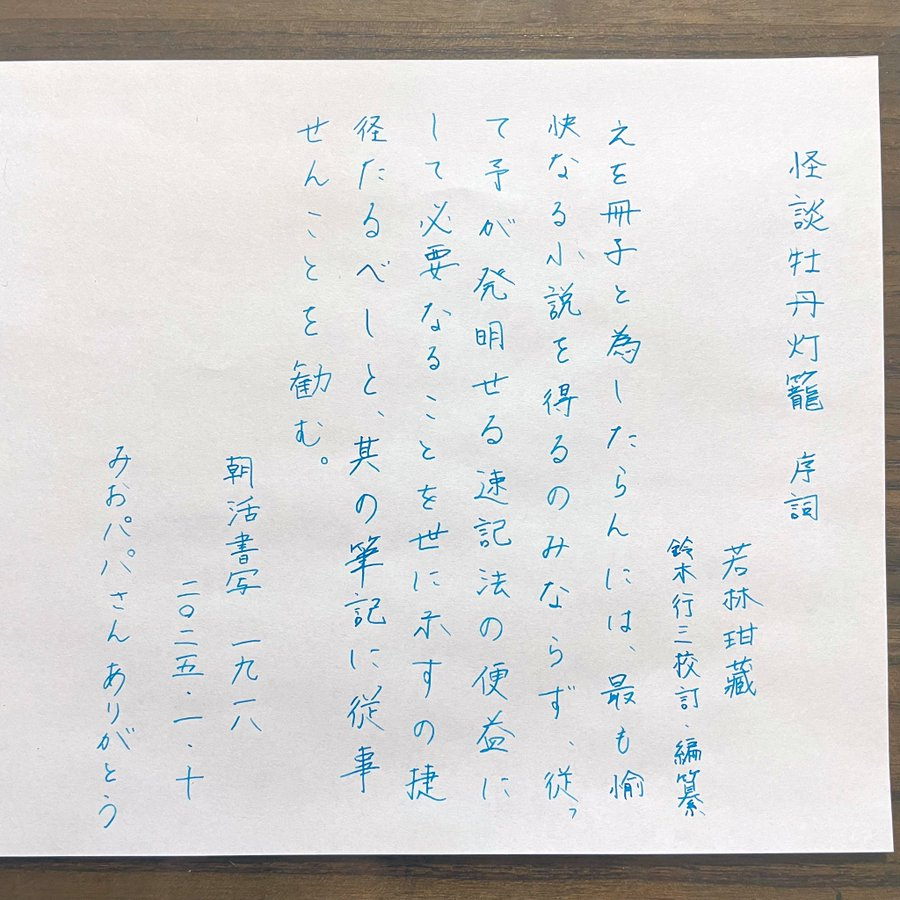 怪談牡丹灯籠 序詞
若林玵藏
鈴木行三校訂・編纂
えを冊子と為したらんには、最も愉
快なる小説を得るのみならず、従っ
て予が発明せる速記法の便益に
して必要なることを世に示すの捷
径たるべしと、其の筆記に従事
せんことを勧む。
朝活書写 一九一八
二〇二五・一・十
みおパパさんありがとう